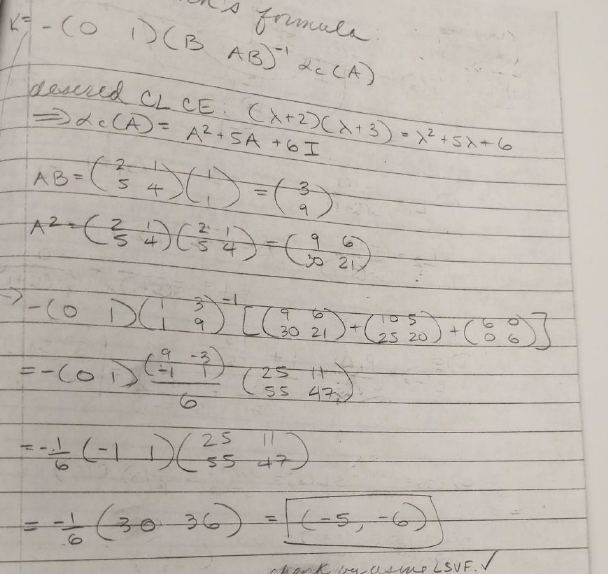 's formula.
K = -(0 1)(B AB)⁻¹ αc(A)
desired CL CE: (λ+2)(λ+3) = λ²+5λ+6
⟹ αc(A) = A²+5A+6I
AB = (2 1; 5 4)(1; 1) = (3; 9)
A² = (2 1; 5 4)(2 1; 5 4) = (9 6; 30 21)
→ -(0 1)(1 3; 1 9)⁻¹ [(9 6; 30 21) + (10 5; 25 20) + (6 0; 0 6)]
= -(0 1) (9 -3; -1 1)/6 (25 11; 55 47)
= -1/6 (-1 1)(25 11; 55 47)
= -1/6 (30 36) = (-5, -6)
check by using LSVF. ✓